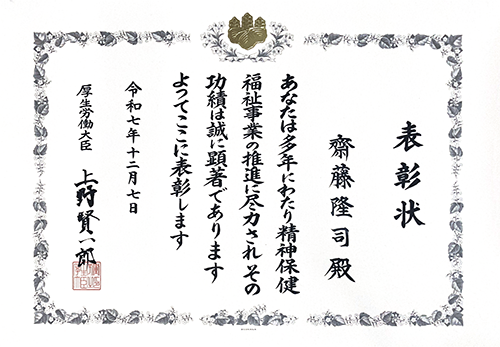 表彰状
齋藤隆司殿
あなたは多年にわたり精神保健
福祉事業の推進に尽力されその
功績は誠に顕著であります
よってここに表彰します
令和七年十二月七日
厚生労働大臣
上野賢一郎